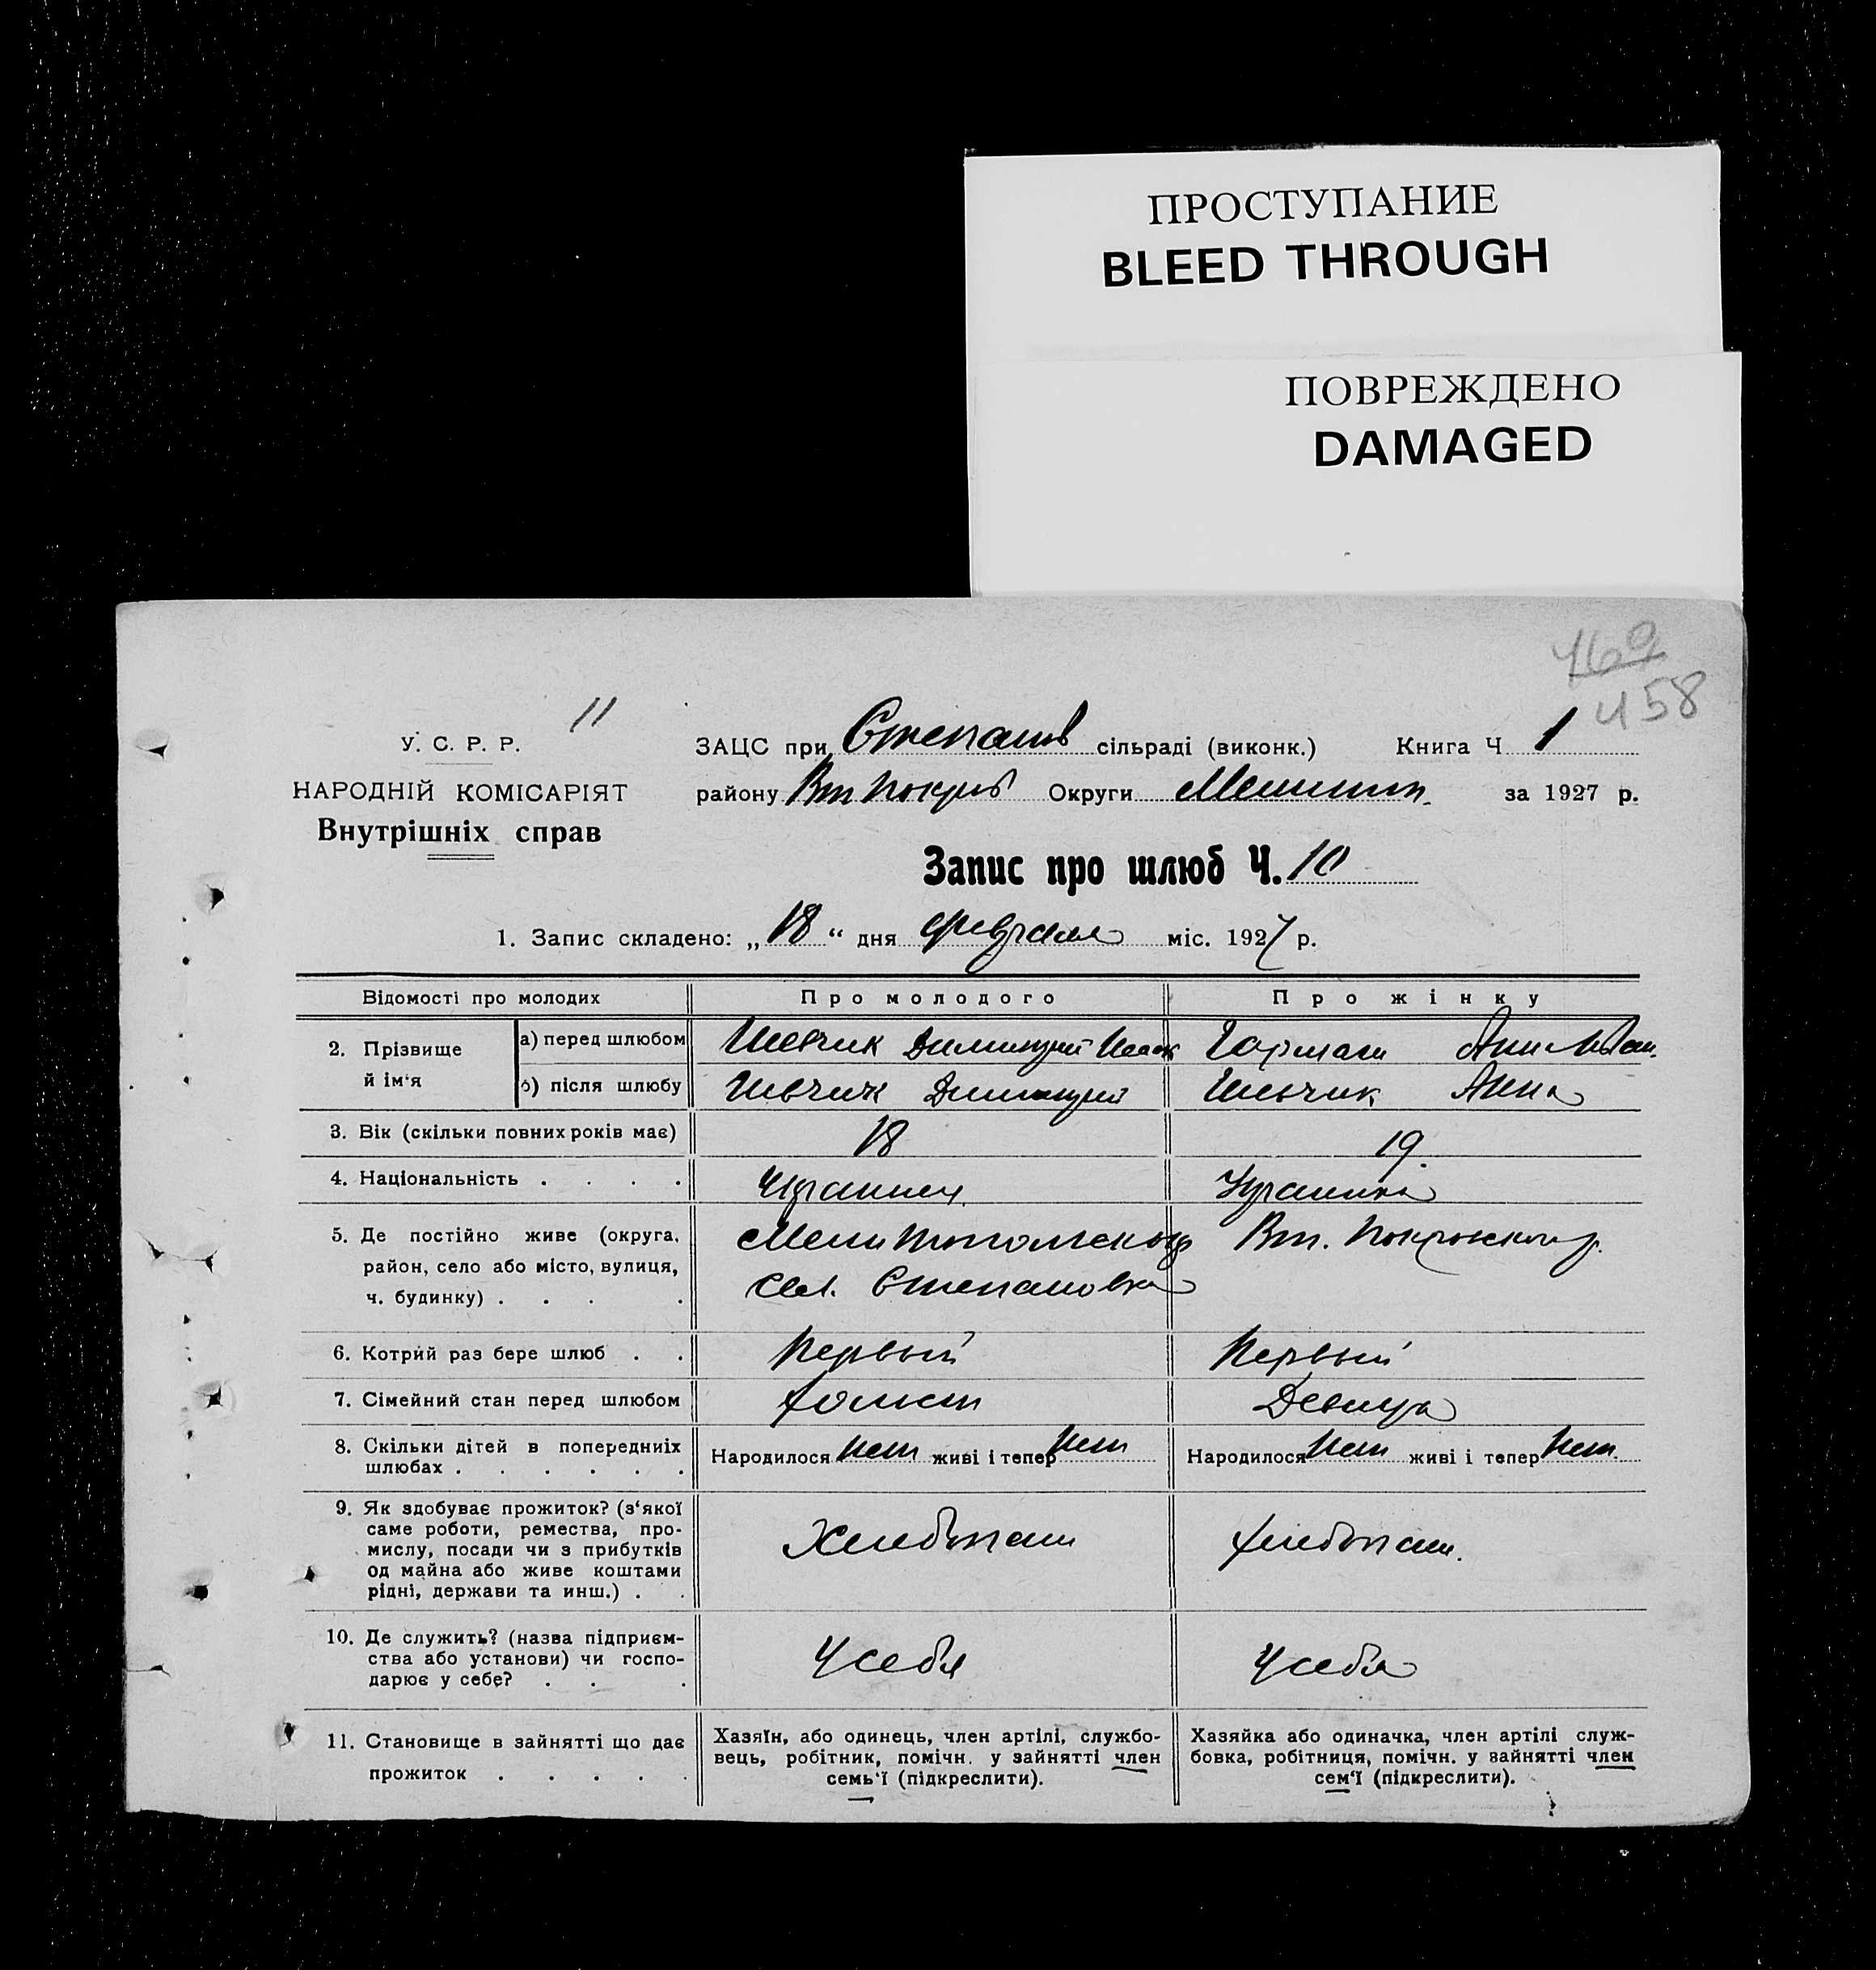 ПРОСТУПАНИЕ
BLEED THROUGH
ПОВРЕЖДЕНО
DAMAGED
469
458
11
У. С. Р. Р.
НАРОДНІЙ КОМІСАРІЯТ
Внутрішніх справ
ЗАЦС при Степанов сільраді (виконк.) Книга Ч 1
району Вт Покров Округи Мелитоп. за 1927 р.
Запис про шлюб Ч. 10
1. Запис складено: „18“ дня февраля міс. 1927 р.
Відомості про молодих Про молодого Про жінку
2. Прізвище й ім‘я
а) перед шлюбом Шевчик Димитрий Горман Анна
б) після шлюбу Шевчик Димитрий Шевчик Анна
3. Вік (скільки повних років має) 18 19
4. Національність . . . . Украинец Украинка
5. Де постійно живе (округа, район, село або місто, вулиця, ч. будинку) . . . .
Мелитопольского Вт. Покровского р.
сел. Степановка
6. Котрий раз бере шлюб . . Первый Первый
7. Сімейний стан перед шлюбом холост Девица
8. Скільки дітей в попередниіх шлюбах . . . . . .
Народилося нет живі і тепер нет Народилося нет живі і тепер нет.
9. Як здобуває прожиток? (з‘якої
саме роботи, ремества, про-
мислу, посади чи з прибутків
од майна або живе коштами
рідні, держави та инш.) . .
Хлебопаш хлебопаш.
10. Де служить? (назва підприєм-
ства або установи) чи госпо-
дарює у себе? . . .
У себя У себя
11. Становище в зайнятті що дає
прожиток . . . . .
Хазяїн, або одинець, член артілі, службо-
вець, робітник, помічн. у зайнятті член
семь‘ї (підкреслити).
Хазяйка або одиначка, член артілі служ-
бовка, робітниця, помічн. у зайнятті член
сем‘ї (підкреслити).